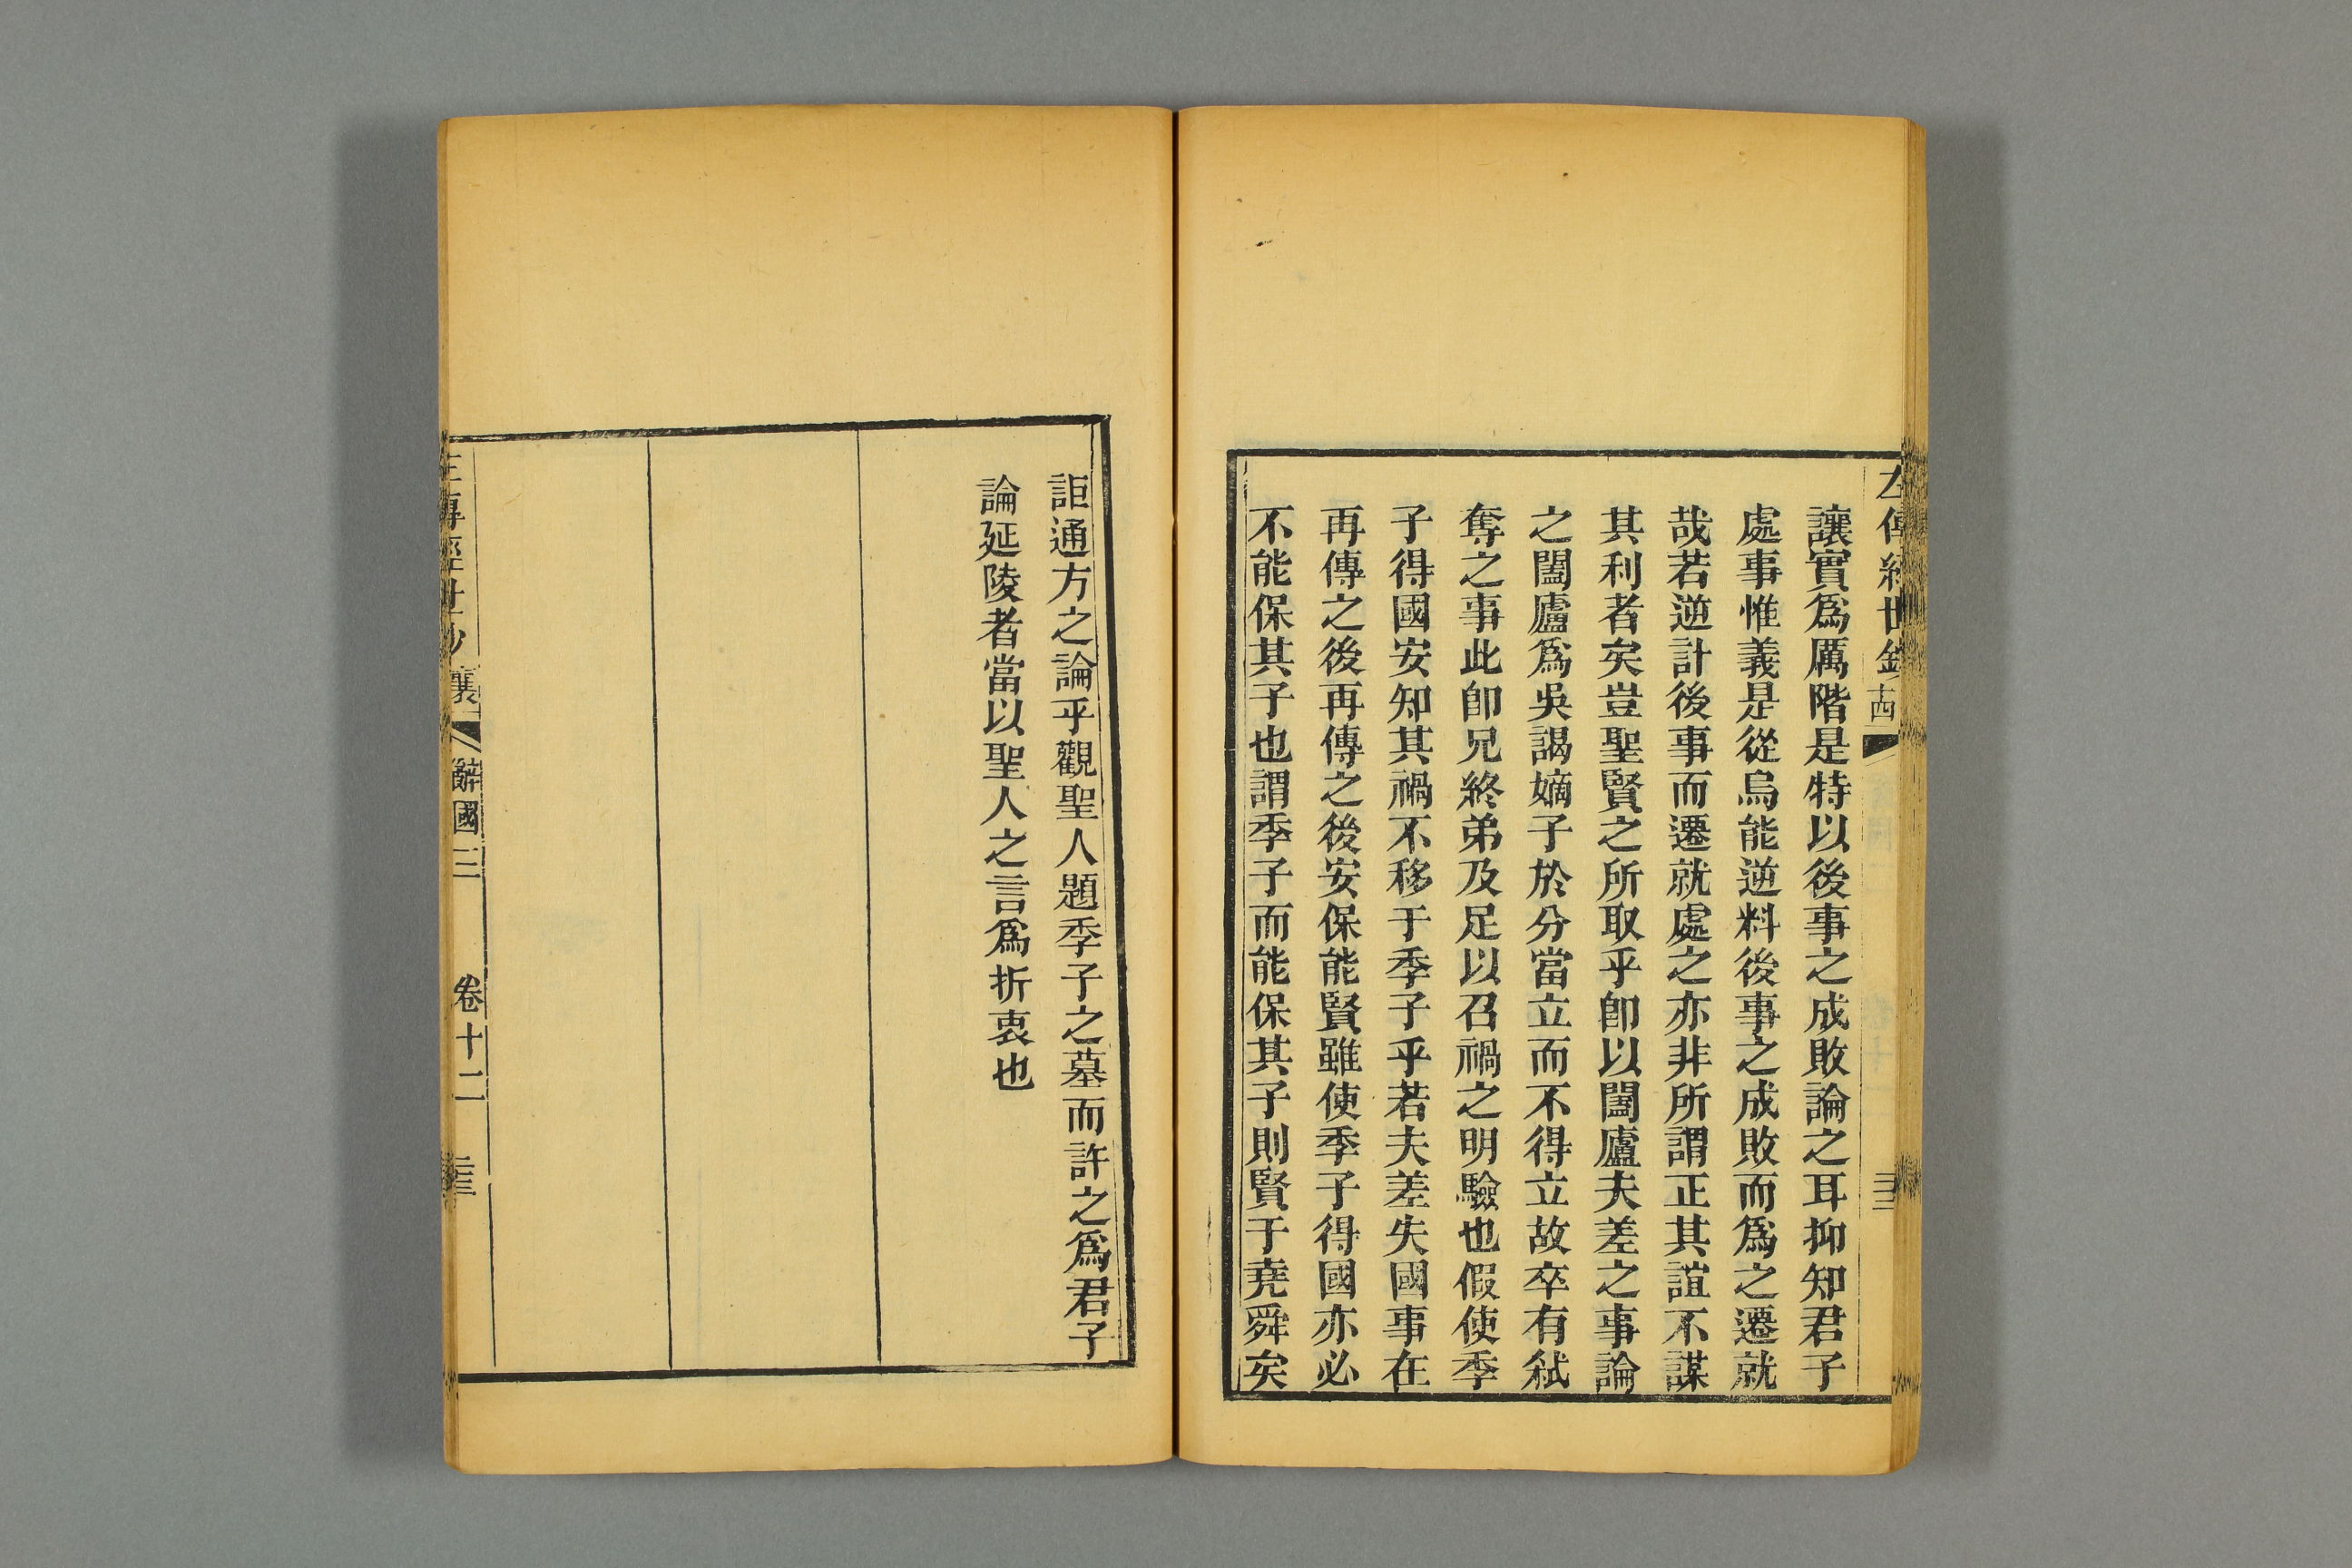 左傳經世鈔
十四
三十二
讓實爲厲階是特以後事之成敗論之耳抑知君子
處事惟義是從烏能逆料後事之成敗而爲之遷就
哉若逆計後事而遷就處之亦非所謂正其誼不謀
其利者矣豈聖賢之所取乎卽以闔廬夫差之事論
之闔廬爲吳謁嫡子於分當立而不得立故卒有弑
奪之事此卽兄終弟及足以召禍之明驗也假使季
子得國安知其禍不移于季子乎若夫差失國事在
再傳之後再傳之後安保能賢雖使季子得國亦必
不能保其子也謂季子而能保其子則賢于堯舜矣
詎通方之論乎觀聖人題季子之墓而許之爲君子
論延陵者當以聖人之言爲折衷也
左傳經世鈔
襄
辭國三
卷十二